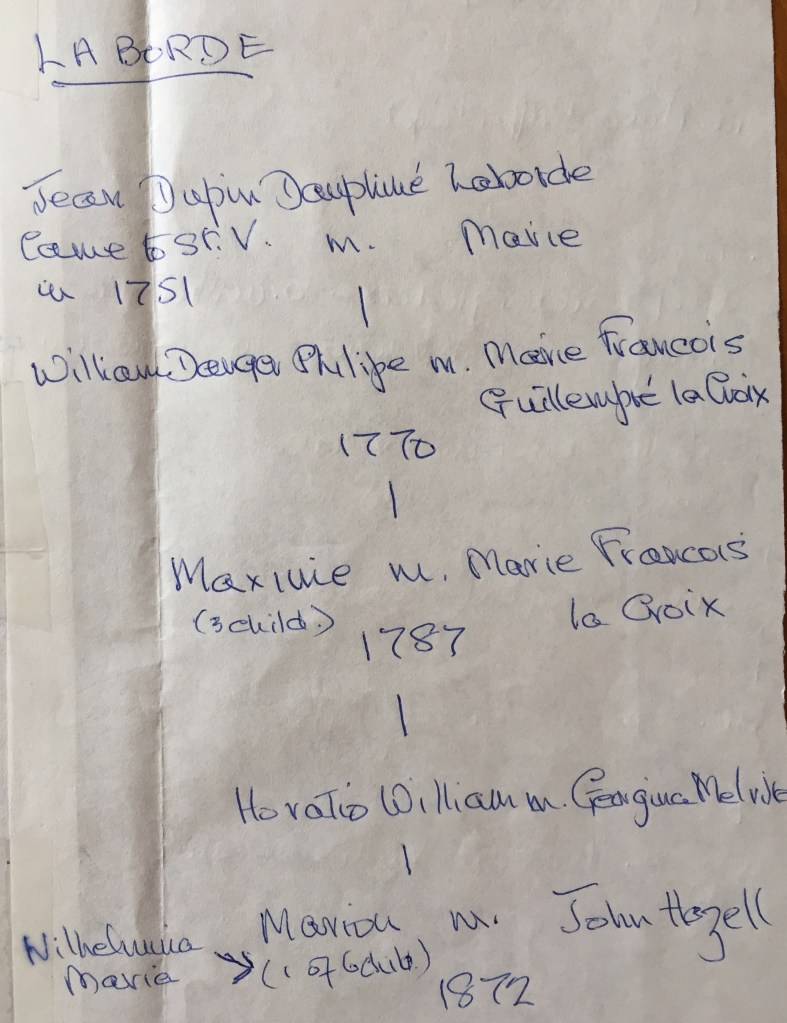 LA BORDE
Jean Dupin Dauphiné Laborde
Came to St. V. m. Marie
in 1751
William Danga Philipe m. Marie Francois
Guillempré la Croix
1770
Maximie m. Marie Francois
(3 child.) la Croix
1787
Horatio William m. Georgina Melville
Marion m. John Hazell
Wilhelmina
Maria (1 of 6 child.)
1872